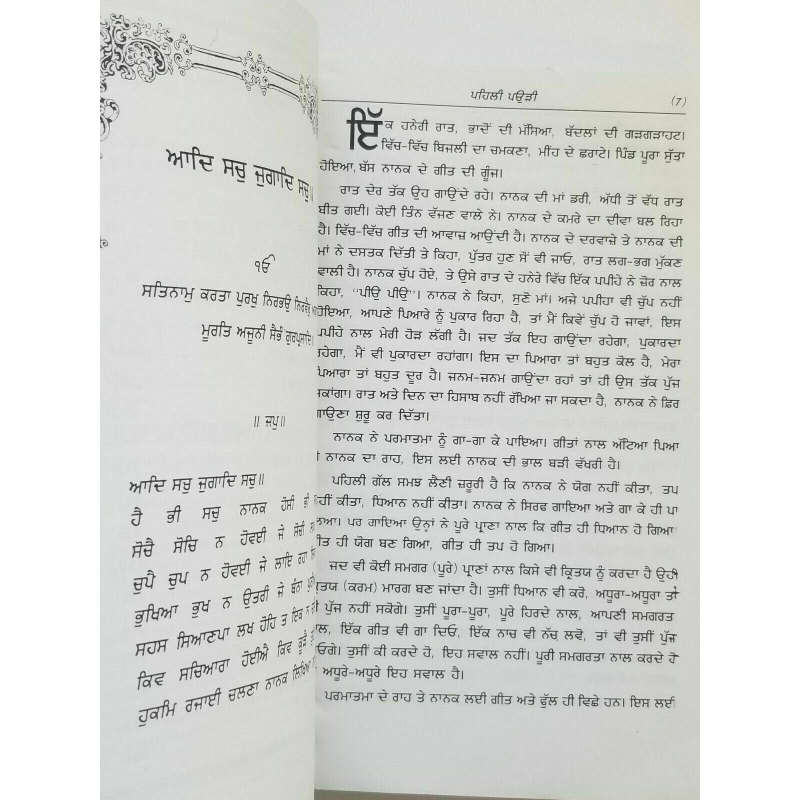 ਆਦਿ ਸਚੁ ਜੁਗਾਦਿ ਸਚੁ॥
ੴ
ਸਤਿਨਾਮੁ ਕਰਤਾ ਪੁਰਖੁ ਨਿਰਭਉ ਨਿਰਵੈਰੁ
ਮੂਰਤਿ ਅਜੂਨੀ ਸੈਭੰ ਗੁਰਪ੍ਰਸਾਦਿ।
॥ ਜਪੁ॥
ਆਦਿ ਸਚੁ ਜੁਗਾਦਿ ਸਚੁ॥
ਹੈ ਭੀ ਸਚੁ ਨਾਨਕ ਹੋਸੀ ਭੀ
ਸੋਚੈ ਸੋਚਿ ਨ ਹੋਵਈ ਜੇ ਸੋਚੀ
ਚੁਪੈ ਚੁਪ ਨ ਹੋਵਈ ਜੇ ਲਾਇ ਰਹਾ
ਭੁਖਿਆ ਭੁਖ ਨ ਉਤਰੀ ਜੇ ਬੰਨਾ
ਸਹਸ ਸਿਆਣਪਾ ਲਖ ਹੋਹਿ ਤ ਇਕ ਨ
ਕਿਵ ਸਚਿਆਰਾ ਹੋਈਐ ਕਿਵ ਕੂੜੈ
ਹੁਕਮਿ ਰਜਾਈ ਚਲਣਾ ਨਾਨਕ ਲਿਖਿਆ
ਪਹਿਲੀ ਪਉੜੀ (7)
ਇੱਕ ਹਨੇਰੀ ਰਾਤ, ਭਾਦੋਂ ਦੀ ਮੱਸਿਆ, ਬੱਦਲਾਂ ਦੀ ਗੜਗੜਾਹਟ।
ਵਿੱਚ-ਵਿੱਚ ਬਿਜਲੀ ਦਾ ਚਮਕਣਾ, ਮੀਂਹ ਦੇ ਛਰਾਟੇ। ਪਿੰਡ ਪੂਰਾ ਸੁੱਤਾ
ਹੋਇਆ, ਬੱਸ ਨਾਨਕ ਦੇ ਗੀਤ ਦੀ ਗੂੰਜ।
ਰਾਤ ਦੇਰ ਤੱਕ ਉਹ ਗਾਉਂਦੇ ਰਹੇ। ਨਾਨਕ ਦੀ ਮਾਂ ਡਰੀ, ਅੱਧੀ ਤੋਂ ਵੱਧ ਰਾਤ
ਬੀਤ ਗਈ। ਕੋਈ ਤਿੰਨ ਵੱਜਣ ਵਾਲੇ ਨੇ। ਨਾਨਕ ਦੇ ਕਮਰੇ ਦਾ ਦੀਵਾ ਬਲ ਰਿਹਾ
ਹੈ। ਵਿੱਚ-ਵਿੱਚ ਗੀਤ ਦੀ ਆਵਾਜ਼ ਆਉਂਦੀ ਹੈ। ਨਾਨਕ ਦੇ ਦਰਵਾਜ਼ੇ ਤੇ ਨਾਨਕ ਦੀ
ਮਾਂ ਨੇ ਦਸਤਕ ਦਿੱਤੀ ਤੇ ਕਿਹਾ, ਪੁੱਤਰ ਹੁਣ ਸੌਂ ਵੀ ਜਾਓ, ਰਾਤ ਲਗ-ਭਗ ਮੁੱਕਣ
ਵਾਲੀ ਹੈ। ਨਾਨਕ ਚੁੱਪ ਹੋਏ, ਤੇ ਉਸੇ ਰਾਤ ਦੇ ਹਨੇਰੇ ਵਿੱਚ ਇੱਕ ਪਪੀਹੇ ਨੇ ਜ਼ੋਰ ਨਾਲ
ਕਿਹਾ, ''ਪੀਉ ਪੀਉ''। ਨਾਨਕ ਨੇ ਕਿਹਾ, ਸੁਣੋ ਮਾਂ। ਅਜੇ ਪਪੀਹਾ ਵੀ ਚੁੱਪ ਨਹੀਂ
ਹੋਇਆ, ਆਪਣੇ ਪਿਆਰੇ ਨੂੰ ਪੁਕਾਰ ਰਿਹਾ ਹੈ, ਤਾਂ ਮੈਂ ਕਿਵੇਂ ਚੁੱਪ ਹੋ ਜਾਵਾਂ, ਇਸ
ਪਪੀਹੇ ਨਾਲ ਮੇਰੀ ਹੋੜ ਲੱਗੀ ਹੈ। ਜਦ ਤੱਕ ਇਹ ਗਾਉਂਦਾ ਰਹੇਗਾ, ਪੁਕਾਰਦਾ
ਰਹੇਗਾ, ਮੈਂ ਵੀ ਪੁਕਾਰਦਾ ਰਹਾਂਗਾ। ਇਸ ਦਾ ਪਿਆਰਾ ਤਾਂ ਬਹੁਤ ਕੋਲ ਹੈ, ਮੇਰਾ
ਪਿਆਰਾ ਤਾਂ ਬਹੁਤ ਦੂਰ ਹੈ। ਜਨਮ-ਜਨਮ ਗਾਉਂਦਾ ਰਹਾਂ ਤਾਂ ਹੀ ਉਸ ਤੱਕ ਪੁੱਜ
ਸਕਾਂਗਾ। ਰਾਤ ਅਤੇ ਦਿਨ ਦਾ ਹਿਸਾਬ ਨਹੀਂ ਰੱਖਿਆ ਜਾ ਸਕਦਾ ਹੈ, ਨਾਨਕ ਨੇ ਫ਼ਿਰ
ਗਾਉਣਾ ਸ਼ੁਰੂ ਕਰ ਦਿੱਤਾ।
ਨਾਨਕ ਨੇ ਪਰਮਾਤਮਾ ਨੂੰ ਗਾ-ਗਾ ਕੇ ਪਾਇਆ। ਗੀਤਾਂ ਨਾਲ ਅੱਟਿਆ ਪਿਆ
ਨਾਨਕ ਦਾ ਰਾਹ, ਇਸ ਲਈ ਨਾਨਕ ਦੀ ਭਾਲ ਬੜੀ ਵੱਖਰੀ ਹੈ।
ਪਹਿਲੀ ਗੱਲ ਸਮਝ ਲੈਣੀ ਜ਼ਰੂਰੀ ਹੈ ਕਿ ਨਾਨਕ ਨੇ ਯੋਗ ਨਹੀਂ ਕੀਤਾ, ਤਪ
ਨਹੀਂ ਕੀਤਾ, ਧਿਆਨ ਨਹੀਂ ਕੀਤਾ। ਨਾਨਕ ਨੇ ਸਿਰਫ ਗਾਇਆ ਅਤੇ ਗਾ ਕੇ ਹੀ ਪਾ
ਲਿਆ। ਪਰ ਗਾਇਆ ਉਨ੍ਹਾਂ ਨੇ ਪੂਰੇ ਪ੍ਰਾਣਾ ਨਾਲ ਕਿ ਗੀਤ ਹੀ ਧਿਆਨ ਹੋ ਗਿਆ
ਗੀਤ ਹੀ ਯੋਗ ਬਣ ਗਿਆ, ਗੀਤ ਹੀ ਤਪ ਹੋ ਗਿਆ।
ਜਦ ਵੀ ਕੋਈ ਸਮਗਰ (ਪੂਰੇ) ਪ੍ਰਾਣਾਂ ਨਾਲ ਕਿਸੇ ਵੀ ਕ੍ਰਿਤਯ ਨੂੰ ਕਰਦਾ ਹੈ ਉਹੀ
ਕ੍ਰਿਤਯ (ਕਰਮ) ਮਾਰਗ ਬਣ ਜਾਂਦਾ ਹੈ। ਤੁਸੀਂ ਧਿਆਨ ਵੀ ਕਰੋ, ਅਧੂਰਾ-ਅਧੂਰਾ ਤਾਂ
ਪੁੱਜ ਨਹੀਂ ਸਕੋਗੇ। ਤੁਸੀਂ ਪੂਰਾ-ਪੂਰਾ, ਪੂਰੇ ਹਿਰਦੇ ਨਾਲ, ਆਪਣੀ ਸਮਗਰਤ
ਨਾਲ, ਇੱਕ ਗੀਤ ਵੀ ਗਾ ਦਿਓ, ਇੱਕ ਨਾਚ ਵੀ ਨੱਚ ਲਵੋ, ਤਾਂ ਵੀ ਤੁਸੀਂ ਪੁੱਜ
ਜਾਓਗੇ। ਤੁਸੀਂ ਕੀ ਕਰਦੇ ਹੋ, ਇਹ ਸਵਾਲ ਨਹੀਂ। ਪੂਰੀ ਸਮਗਰਤਾ ਨਾਲ ਕਰਦੇ ਹੋ
ਅਧੂਰੇ-ਅਧੂਰੇ ਇਹ ਸਵਾਲ ਹੈ।
ਪਰਮਾਤਮਾ ਦੇ ਰਾਹ ਤੇ ਨਾਨਕ ਲਈ ਗੀਤ ਅਤੇ ਫੁੱਲ ਹੀ ਵਿਛੇ ਹਨ। ਇਸ ਲਈ